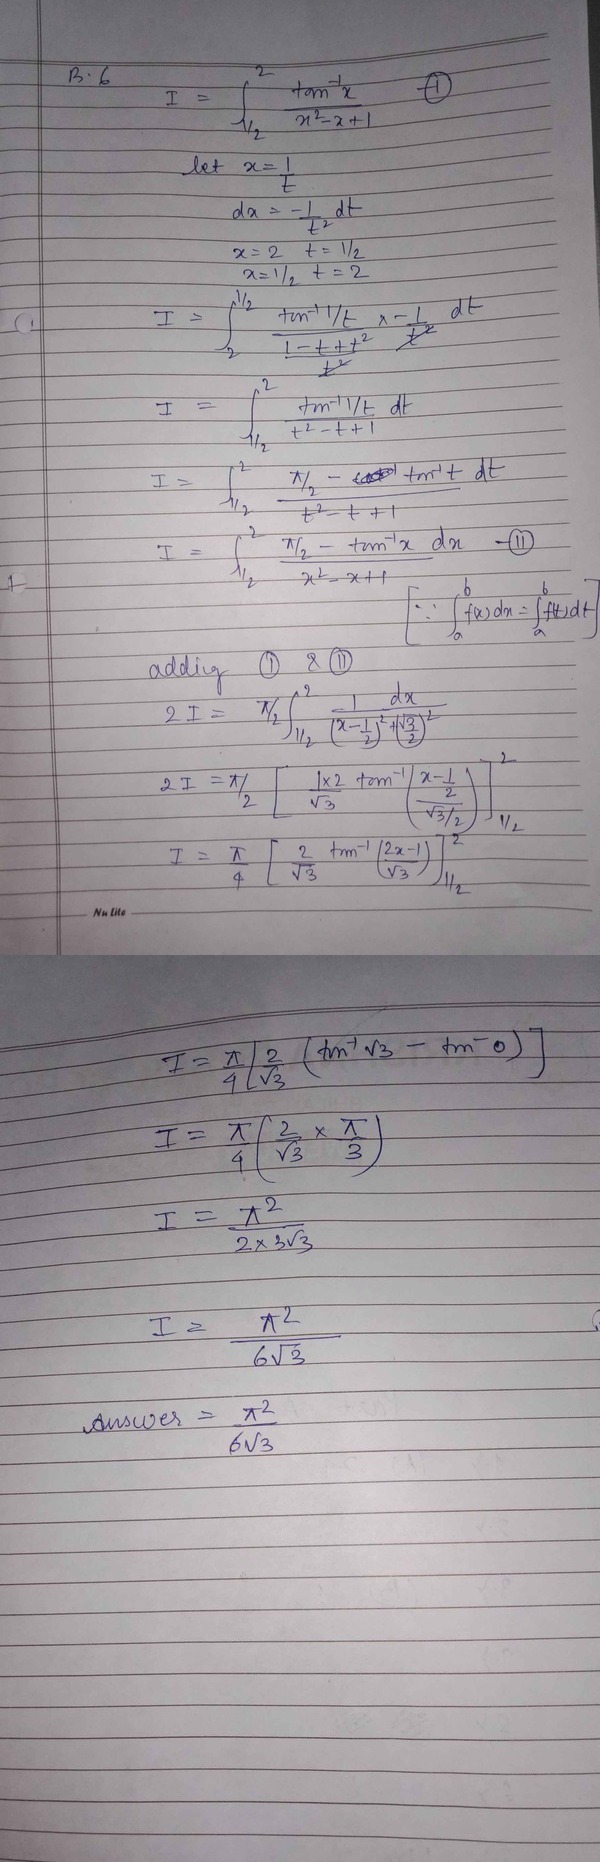 B.6
I = ∫_{1/2}^{2} tan⁻¹x / (x²-x+1) - Ⓘ
let x = 1/t
dx = -1/t² dt
x=2 t=1/2
x=1/2 t=2
I = ∫_{2}^{1/2} (tan⁻¹ 1/t) / ((1-t+t²)/t²) × -1/t² dt
I = ∫_{1/2}^{2} (tan⁻¹ 1/t) / (t²-t+1) dt
I = ∫_{1/2}^{2} (π/2 - tan⁻¹t) / (t²-t+1) dt
I = ∫_{1/2}^{2} (π/2 - tan⁻¹x) / (x²-x+1) dx - Ⓘⓘ
[∵ ∫_{a}^{b} f(x)dx = ∫_{a}^{b} f(t)dt]
adding Ⓘ & Ⓘⓘ
2I = π/2 ∫_{1/2}^{2} 1 dx / ((x-1/2)² + (√3/2)²)
2I = π/2 [ (1×2)/√3 tan⁻¹ ((x-1/2)/(√3/2)) ]_{1/2}^{2}
I = π/4 [ 2/√3 tan⁻¹ ((2x-1)/√3) ]_{1/2}^{2}
NuLite
I = π/4 [2/√3 (tan⁻¹ √3 - tan⁻ 0)]
I = π/4 (2/√3 × π/3)
I = π² / (2×3√3)
I = π² / 6√3
Answer = π² / 6√3